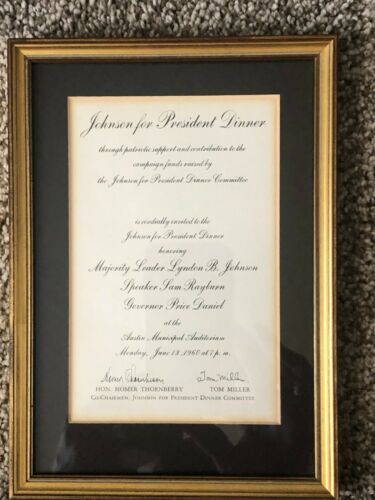 Johnson for President Dinner
through patriotic support and contribution to the
campaign funds raised by
the Johnson for President Dinner Committee
is cordially invited to the
Johnson for President Dinner
honoring
Majority Leader Lyndon B. Johnson
Speaker Sam Rayburn
Governor Price Daniel
at the
Austin Municipal Auditorium
Monday, June 13, 1960 at 7 p. m.
Homer Thornberry Tom Miller
HON. HOMER THORNBERRY TOM MILLER
CO-CHAIRMEN, JOHNSON FOR PRESIDENT DINNER COMMITTEE